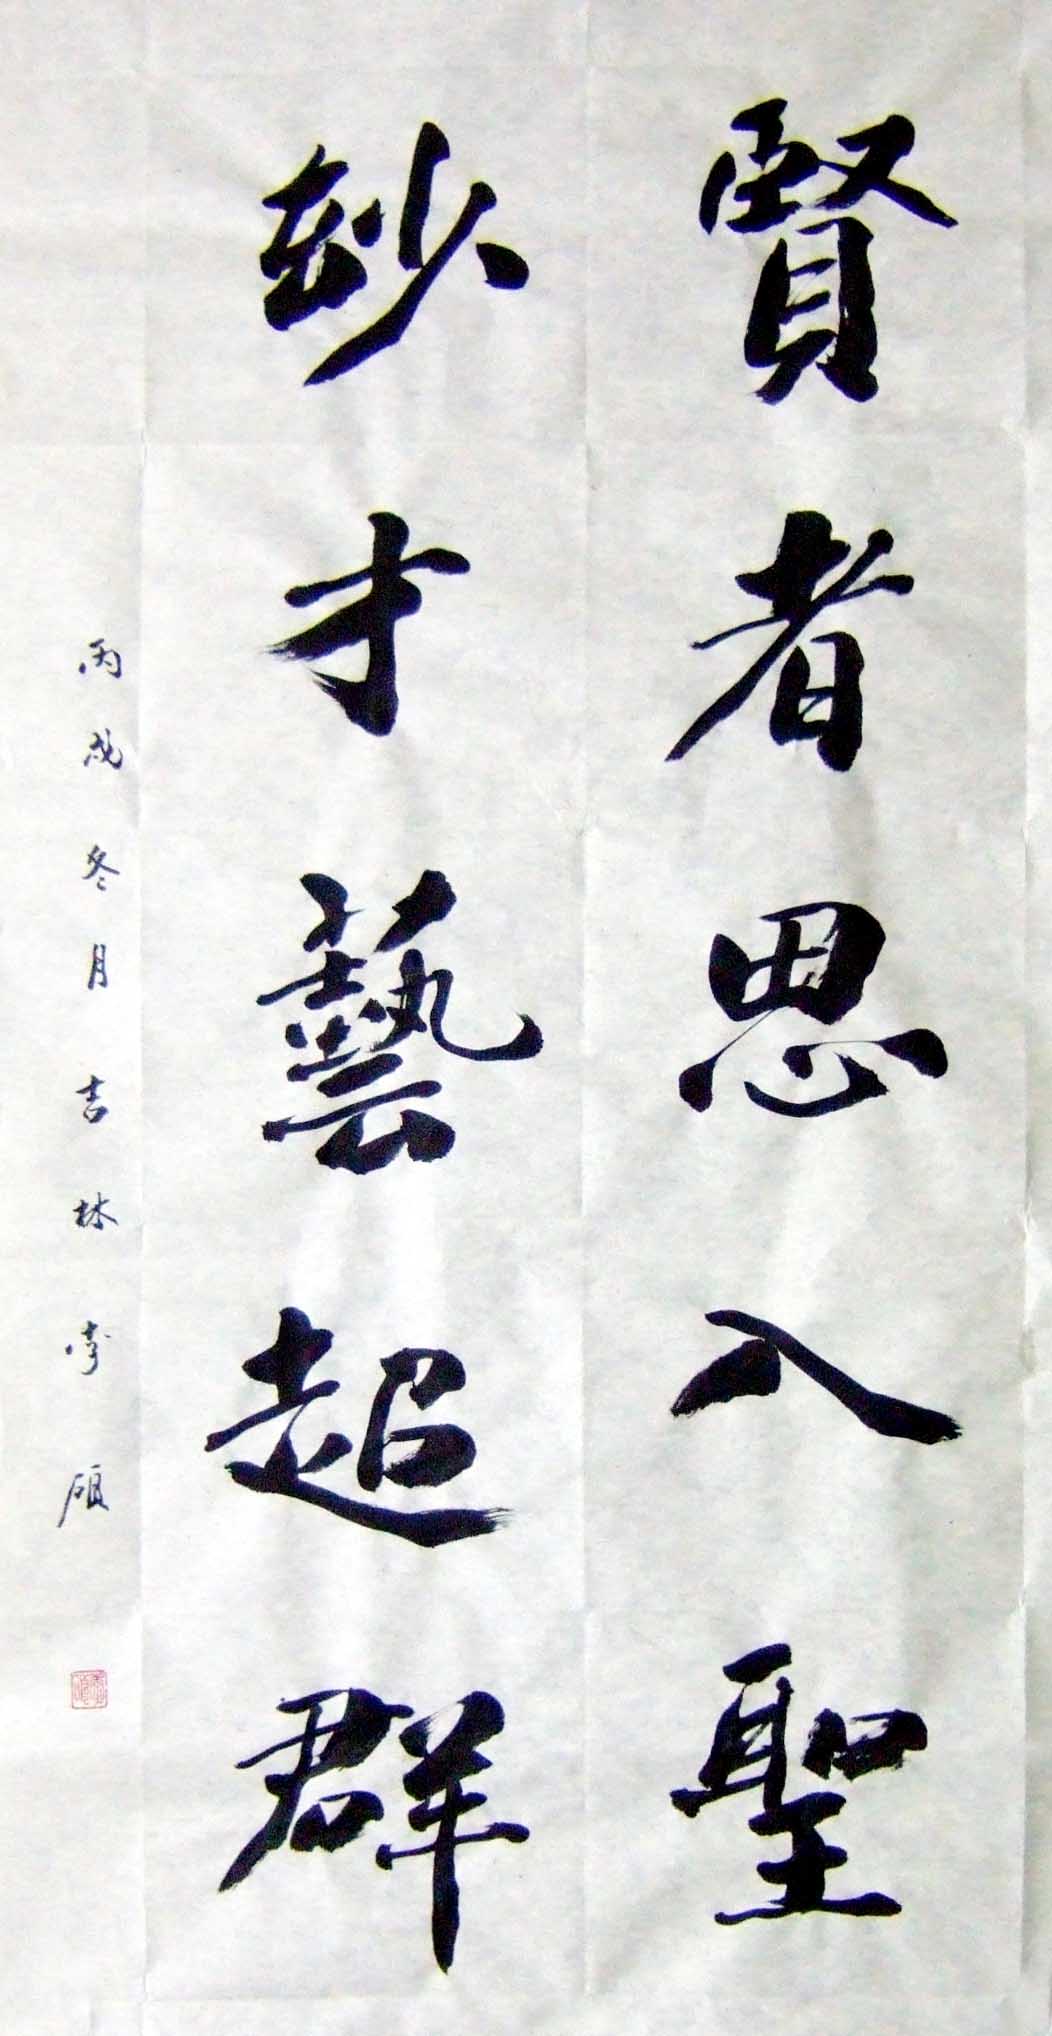 賢者思入聖
玅才藝超群
丙戌冬月吉林李碩